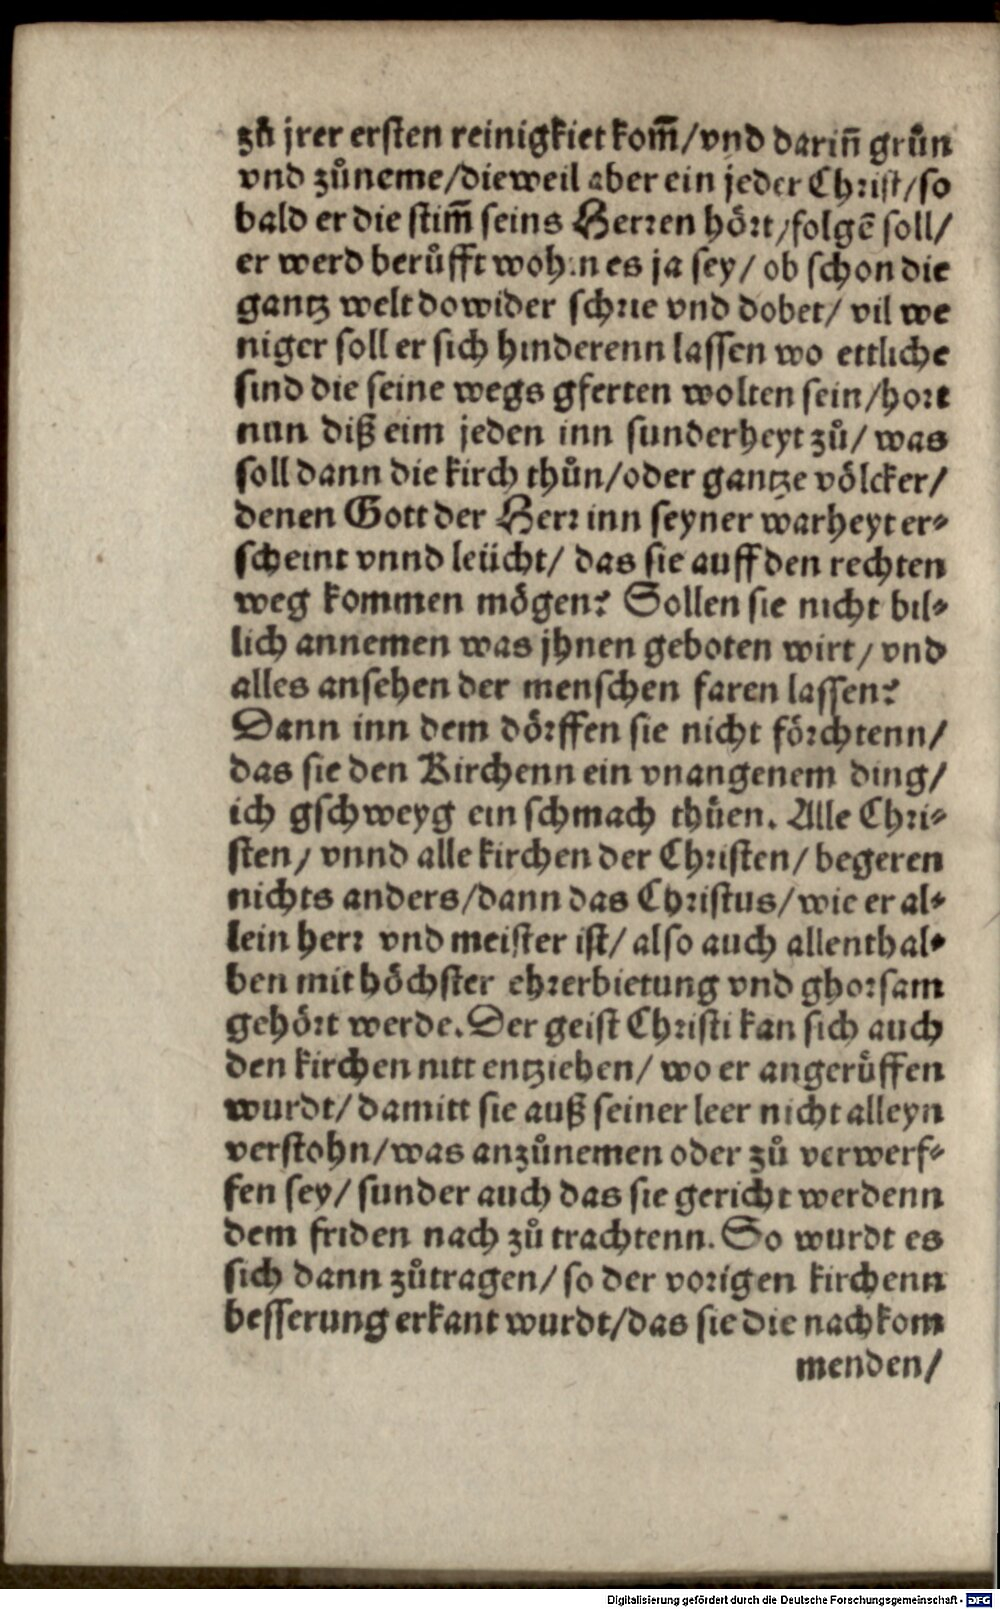 zů jrer ersten reinigkiet kom̃/vnd darin̄ grůn
vnd zůneme/dieweil aber ein jeder Christ/so
bald er die stim̃ seins Herren hört/folgē soll/
er werd berůfft wohin es ja sey/ ob schon die
gantz welt dowider schrie vnd dobet/ vil we
niger soll er sich hinderenn lassen wo ettliche
sind die seine wegs gferten wolten sein/hort
nun diß eim jeden inn sunderheyt zů/ was
soll dann die kirch thůn/oder gantze völcker/
denen Gott der Herr inn seyner warheyt er⸗
scheint vnnd leücht/ das sie auff den rechten
weg kommen mögen? Sollen sie nicht bil⸗
lich annemen was jhnen geboten wirt/ vnd
alles ansehen der menschen faren lassen?
Dann inn dem dörffen sie nicht förchtenn/
das sie den Kirchenn ein vnangenem ding/
ich gschweyg ein schmach thüen. Alle Chri⸗
sten/ vnnd alle kirchen der Christen/ begeren
nichts anders/dann das Christus/wie er al⸗
lein herr vnd meister ist/ also auch allenthal⸗
ben mit höchster ehrerbietung vnd ghorsam
gehört werde. Der geist Christi kan sich auch
den kirchen nitt entziehen/ wo er angerůffen
wurdt/ damitt sie auß seiner leer nicht alleyn
verstohn/was anzůnemen oder zů verwerf⸗
fen sey/ sunder auch das sie gericht werdenn
dem friden nach zů trachtenn. So wurdt es
sich dann zůtragen/ so der vorigen kirchenn
besserung erkant wurdt/das sie die nachkom
menden/
Digitalisierung gefördert durch die Deutsche Forschungsgemeinschaft - DFG